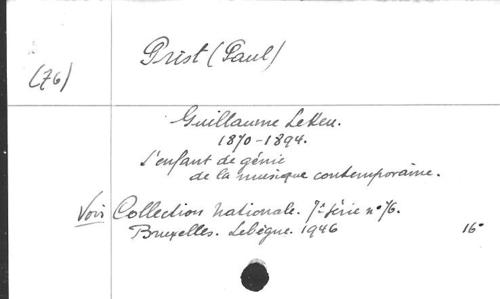 Prist (Paul)
(76)
Guillaume Lekeu.
1870-1894.
L'enfant de génie
de la musique contemporaine.
Voir Collection Nationale. 7e série n° 76.
Bruxelles. Lebègue. 1946 16°